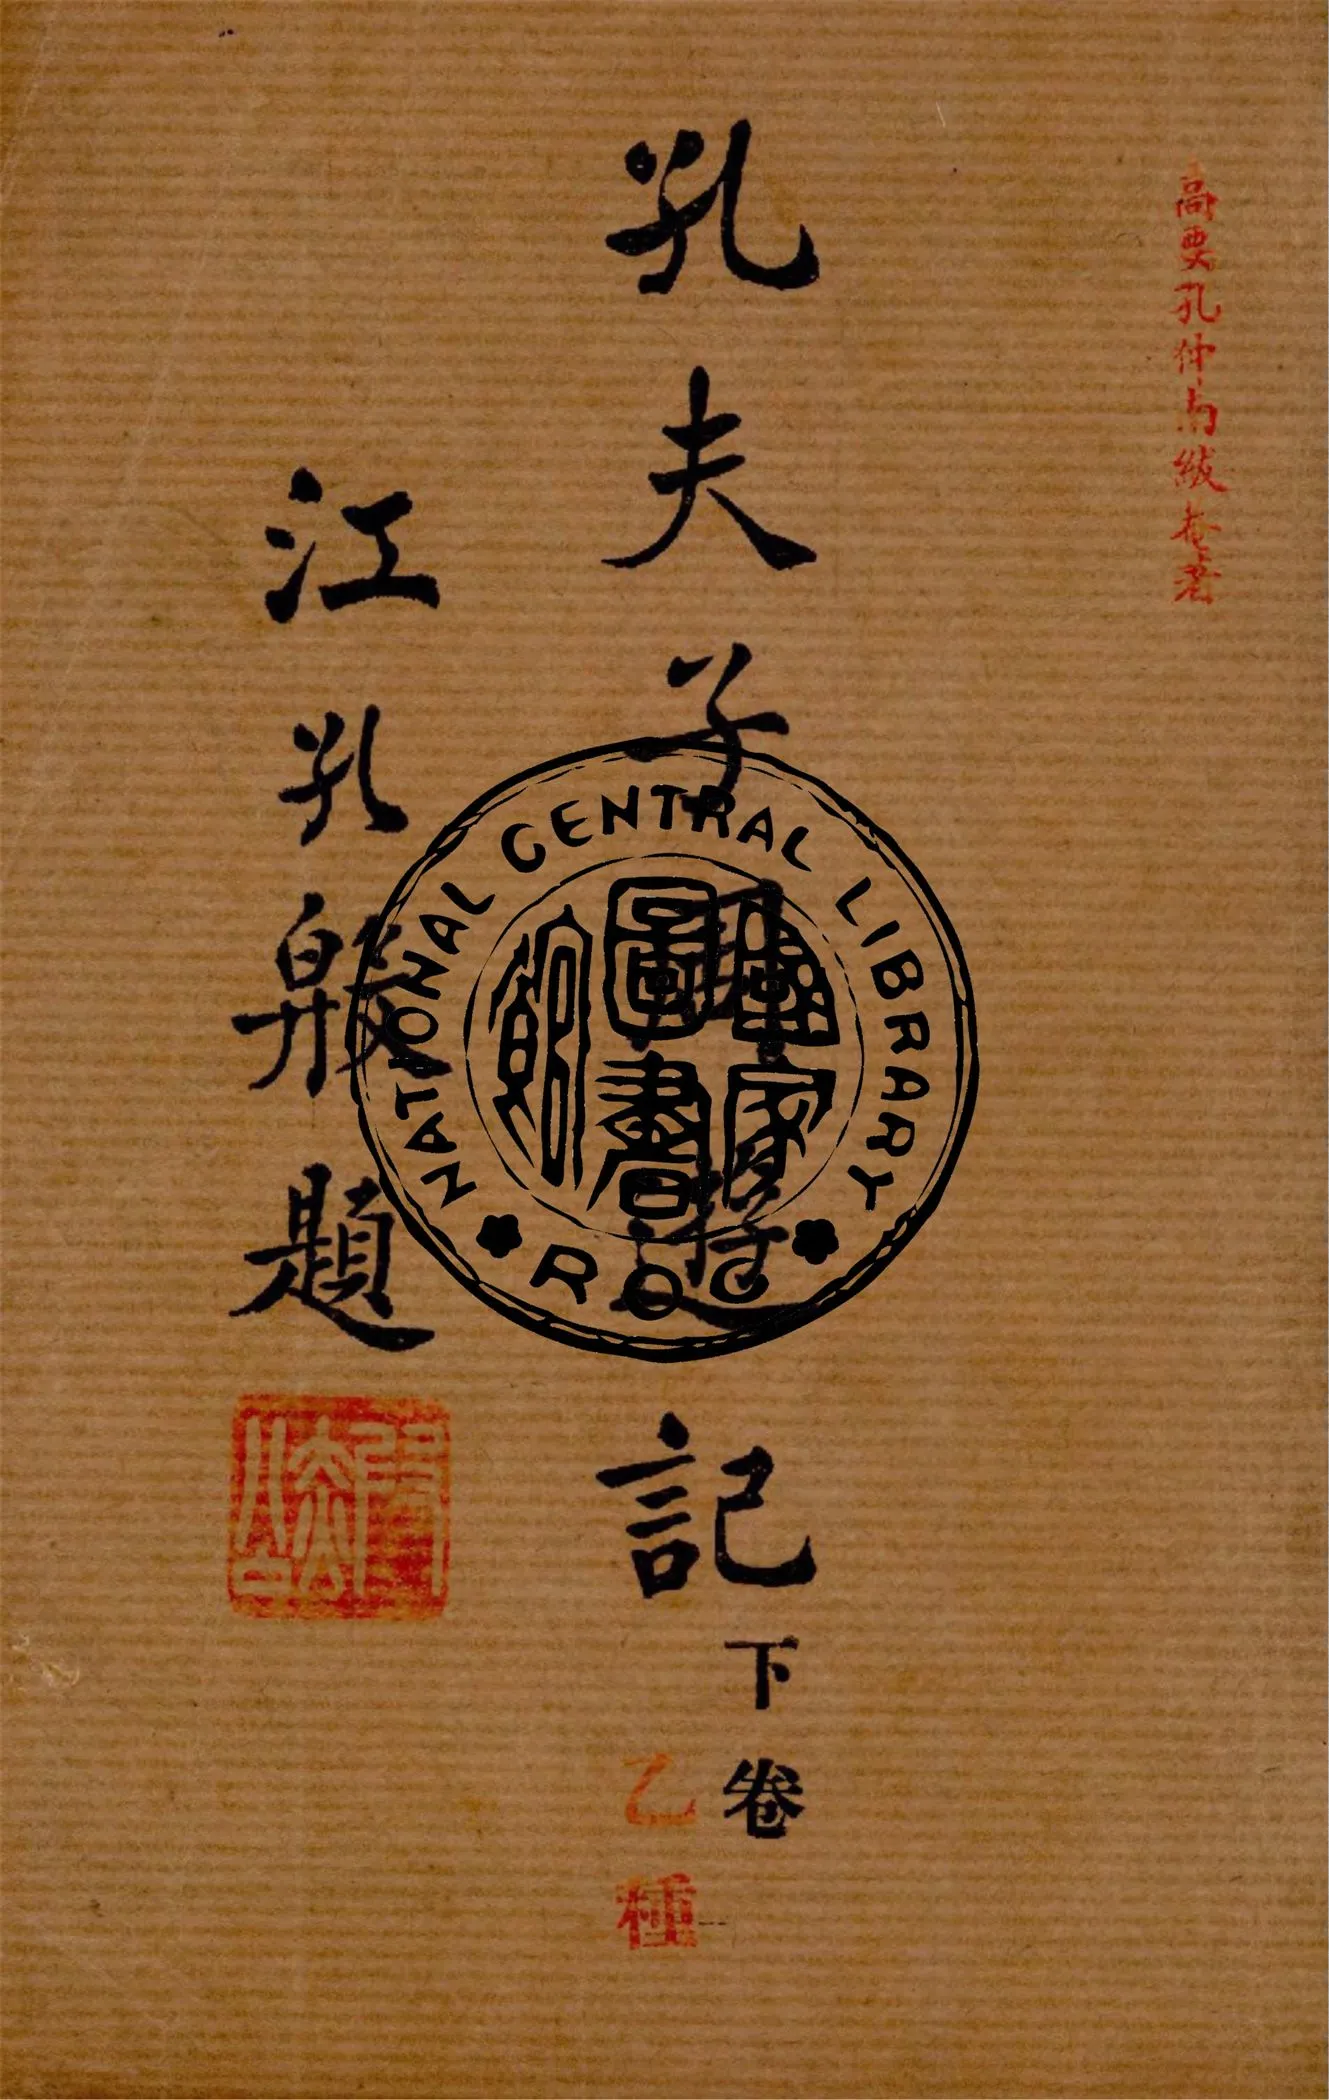 高要孔仲南菴著
孔夫子遊記
下卷
乙種
江孔殷題
NATIONAL CENTRAL LIBRARY
國家
圖書
館
R O C